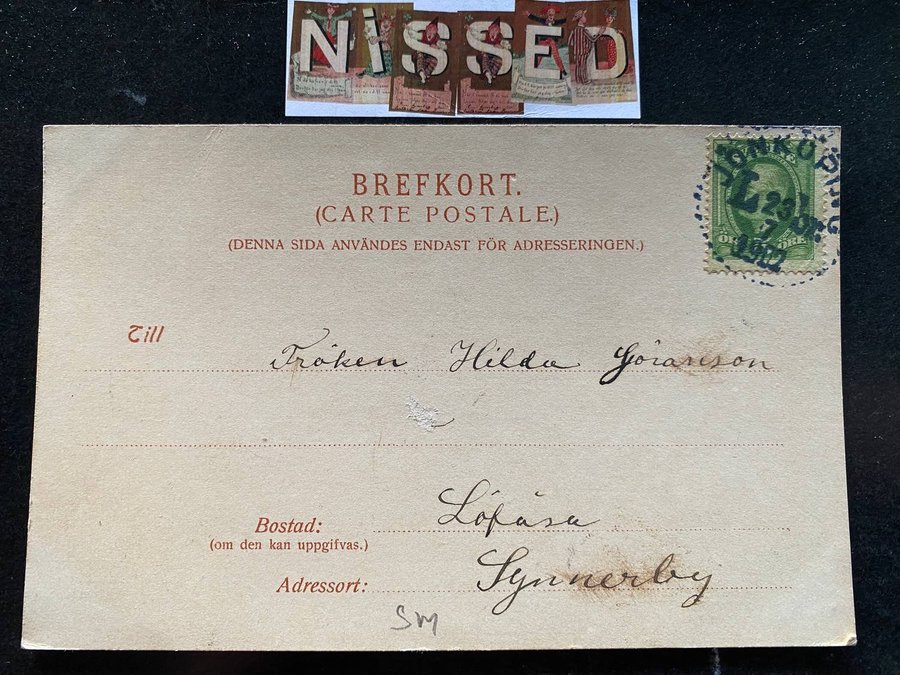 NISSED
BREFKORT.
(CARTE POSTALE.)
(DENNA SIDA ANVÄNDES ENDAST FÖR ADRESSERINGEN.)
JÖNKÖPING
L
23
7
1902
ÖRE
Till
Fröken Hilda Göranson
Löfåsa
Bostad:
(om den kan uppgifvas.)
Synnerby
Adressort:
SM